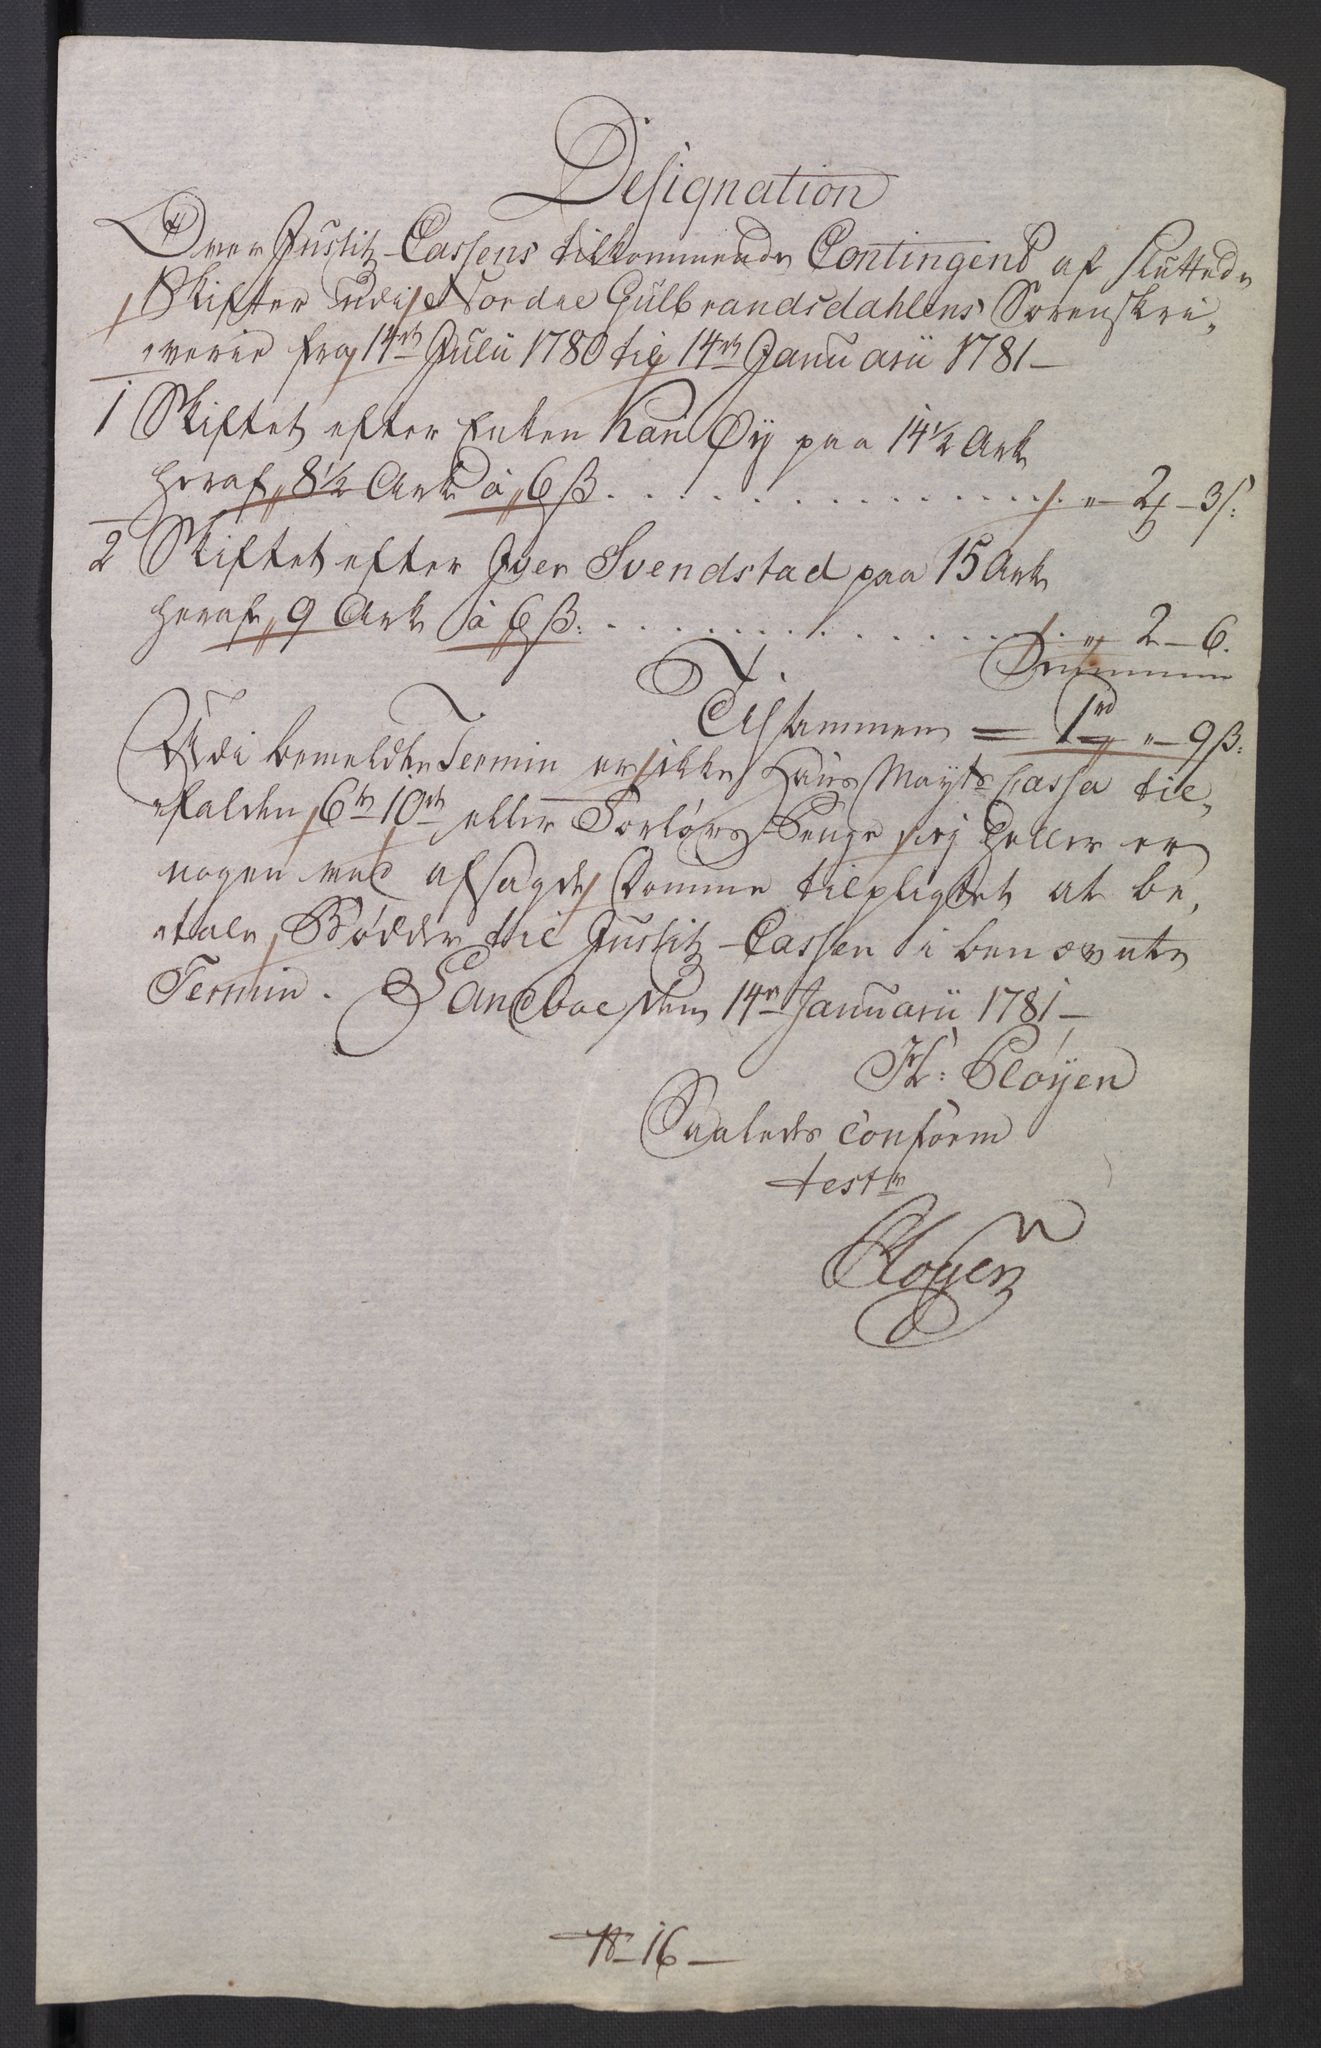 Designation
Over Justitz-Cassens tilkommende Contingent af sluttede
Skifter udi Nordre Gulbrandsdahlens Sorenskri,
,verie fra 14de Julii 1780 til 14de Januarii 1781 –
1 Skiftet efter Enken Kari Øy paa 14½ Ark
heraf 8½ Ark à 6 ß. . . . . . . . . . . . . . . . . „ – 2 – 3 ß:
2 Skiftet efter Iver Svendstad paa 15 Ark
heraf 9 Ark à 6 ß: . . . . . . . . . . . . . . . „ 2 – 6.
Summa
Tilsammen = 1 rd „ – 9 ß:
Udi bemeldte Termin er ikke Hans Mayts Cassa til,
,falden 6te 10de eller Forlovs Penge, ey heller er
nogen ved afsagde Domme tilpligtet at be,
,tale Bøder til Justitz-Cassen i benævnte
Termin. Sandboe den 14de Januarii 1781 –
Pløyen
Saaledes conform
test
Pløyen
N 16 –